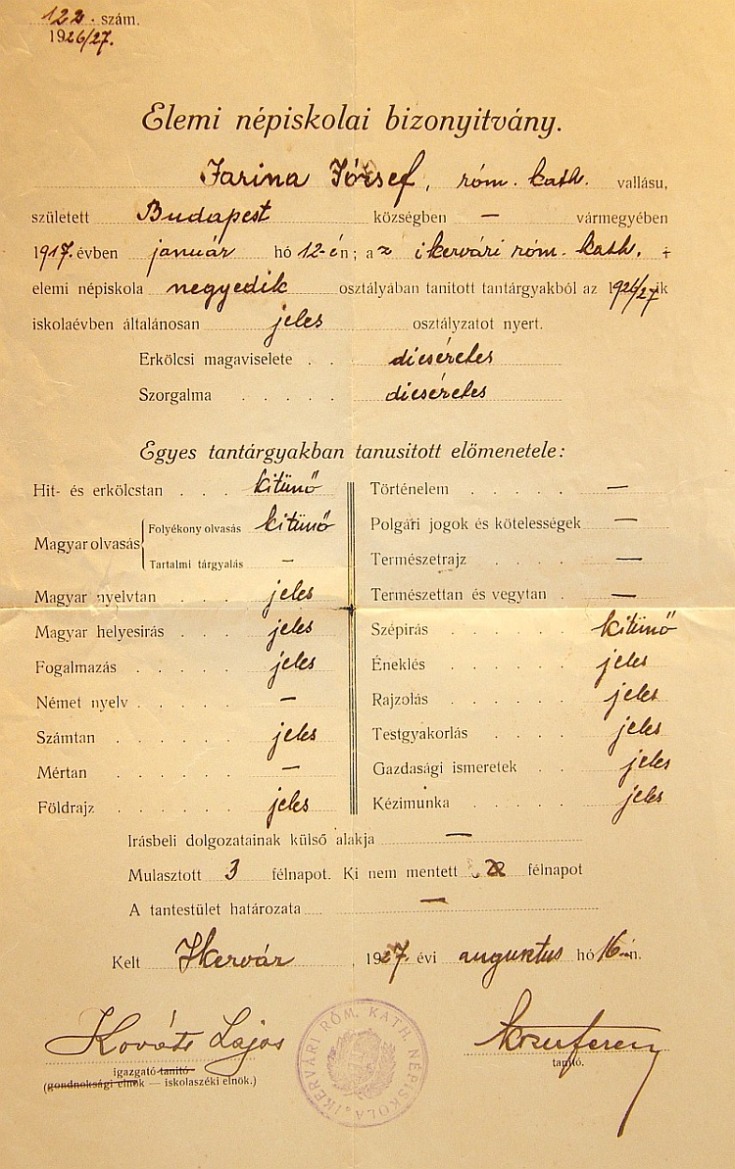 122. szám.
1926/27.
Elemi népiskolai bizonyitvány.
Farina József, róm. kath. vallásu,
született Budapest községben — vármegyében
1917. évben január hó 12-én; a z ikervári róm. kath.
elemi népiskola negyedik osztályában tanitott tantárgyakból az 1926/27 ik
iskolaévben általánosan jeles osztályzatot nyert.
Erkölcsi magaviselete . . dicséretes
Szorgalma . . . . . dicséretes
Egyes tantárgyakban tanusitott előmenetele:
Hit- és erkölcstan . . . kitünő
Magyar olvasás
Folyékony olvasás kitünő
Tartalmi tárgyalás —
Magyar nyelvtan . . . jeles
Magyar helyesirás . . jeles
Fogalmazás . . . . jeles
Német nyelv . . . . —
Számtan . . . . . jeles
Mértan . . . . . —
Földrajz . . . . . jeles
Történelem . . . . —
Polgári jogok és kötelességek —
Természetrajz . . . . —
Természettan és vegytan . —
Szépirás . . . . . kitünő
Éneklés . . . . . jeles
Rajzolás . . . . . jeles
Testgyakorlás . . . . jeles
Gazdasági ismeretek . . jeles
Kézimunka . . . . jeles
Irásbeli dolgozatainak külső alakja —
Mulasztott 3 félnapot. Ki nem mentett félnapot
A tantestület határozata —
Kelt Ikervár, 1927. évi augusztus hó 16-án.
Kováts Lajos
igazgató tanitó
tanitó.
(gondnoksági elnök — iskolaszéki elnök.)
IKERVÁRI RÓM. KATH. NÉPISKOLA